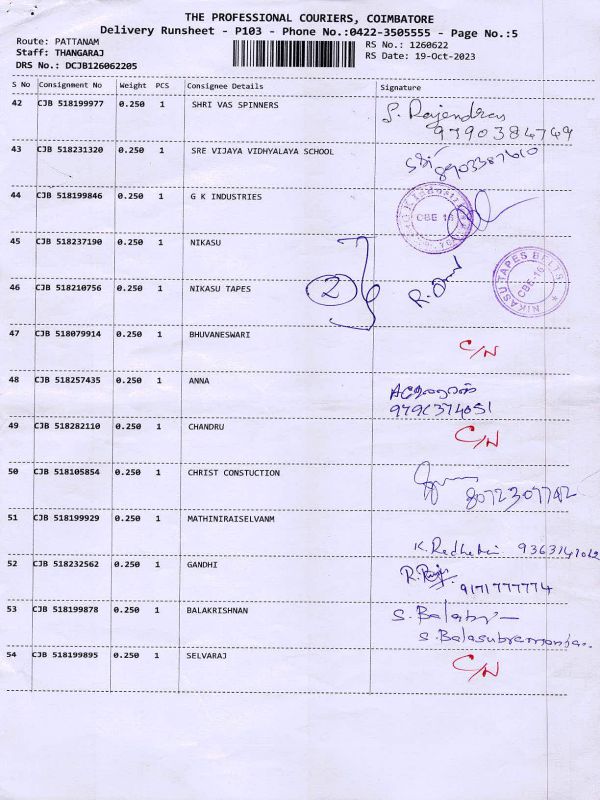 THE PROFESSIONAL COURIERS, COIMBATORE
Delivery Runsheet - P103 - Phone No.:0422-3505555 - Page No.:5
Route: PATTANAM
RS No.: 1260622
Staff: THANGARAJ
RS Date: 19-Oct-2023
DRS No.: DCJB126062205
S No Consignment No Weight PCS Consignee Details Signature
42 CJB 518199977 0.250 1 SHRI VAS SPINNERS S. Rajendran
9790384749
43 CJB 518231320 0.250 1 SRE VIJAYA VIDHYALAYA SCHOOL
44 CJB 518199846 0.250 1 G K INDUSTRIES
CBE 16
45 CJB 518237190 0.250 1 NIKASU
NIKASU TAPES BELTS
CBE-16
46 CJB 518210756 0.250 1 NIKASU TAPES 2
47 CJB 518079914 0.250 1 BHUVANESWARI C/N
48 CJB 518257435 0.250 1 ANNA
49 CJB 518282110 0.250 1 CHANDRU C/N
50 CJB 518105854 0.250 1 CHRIST CONSTUCTION
8072307742
51 CJB 518199929 0.250 1 MATHINIRAISELVANM
52 CJB 518232562 0.250 1 GANDHI
9171777774
53 CJB 518199878 0.250 1 BALAKRISHNAN
54 CJB 518199895 0.250 1 SELVARAJ C/N